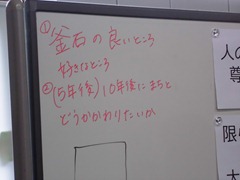 ①釜石の良いところ
好きなところ
②(5年後)10年後にまちと
どうかかわりたいか
人の
尊
限り
大